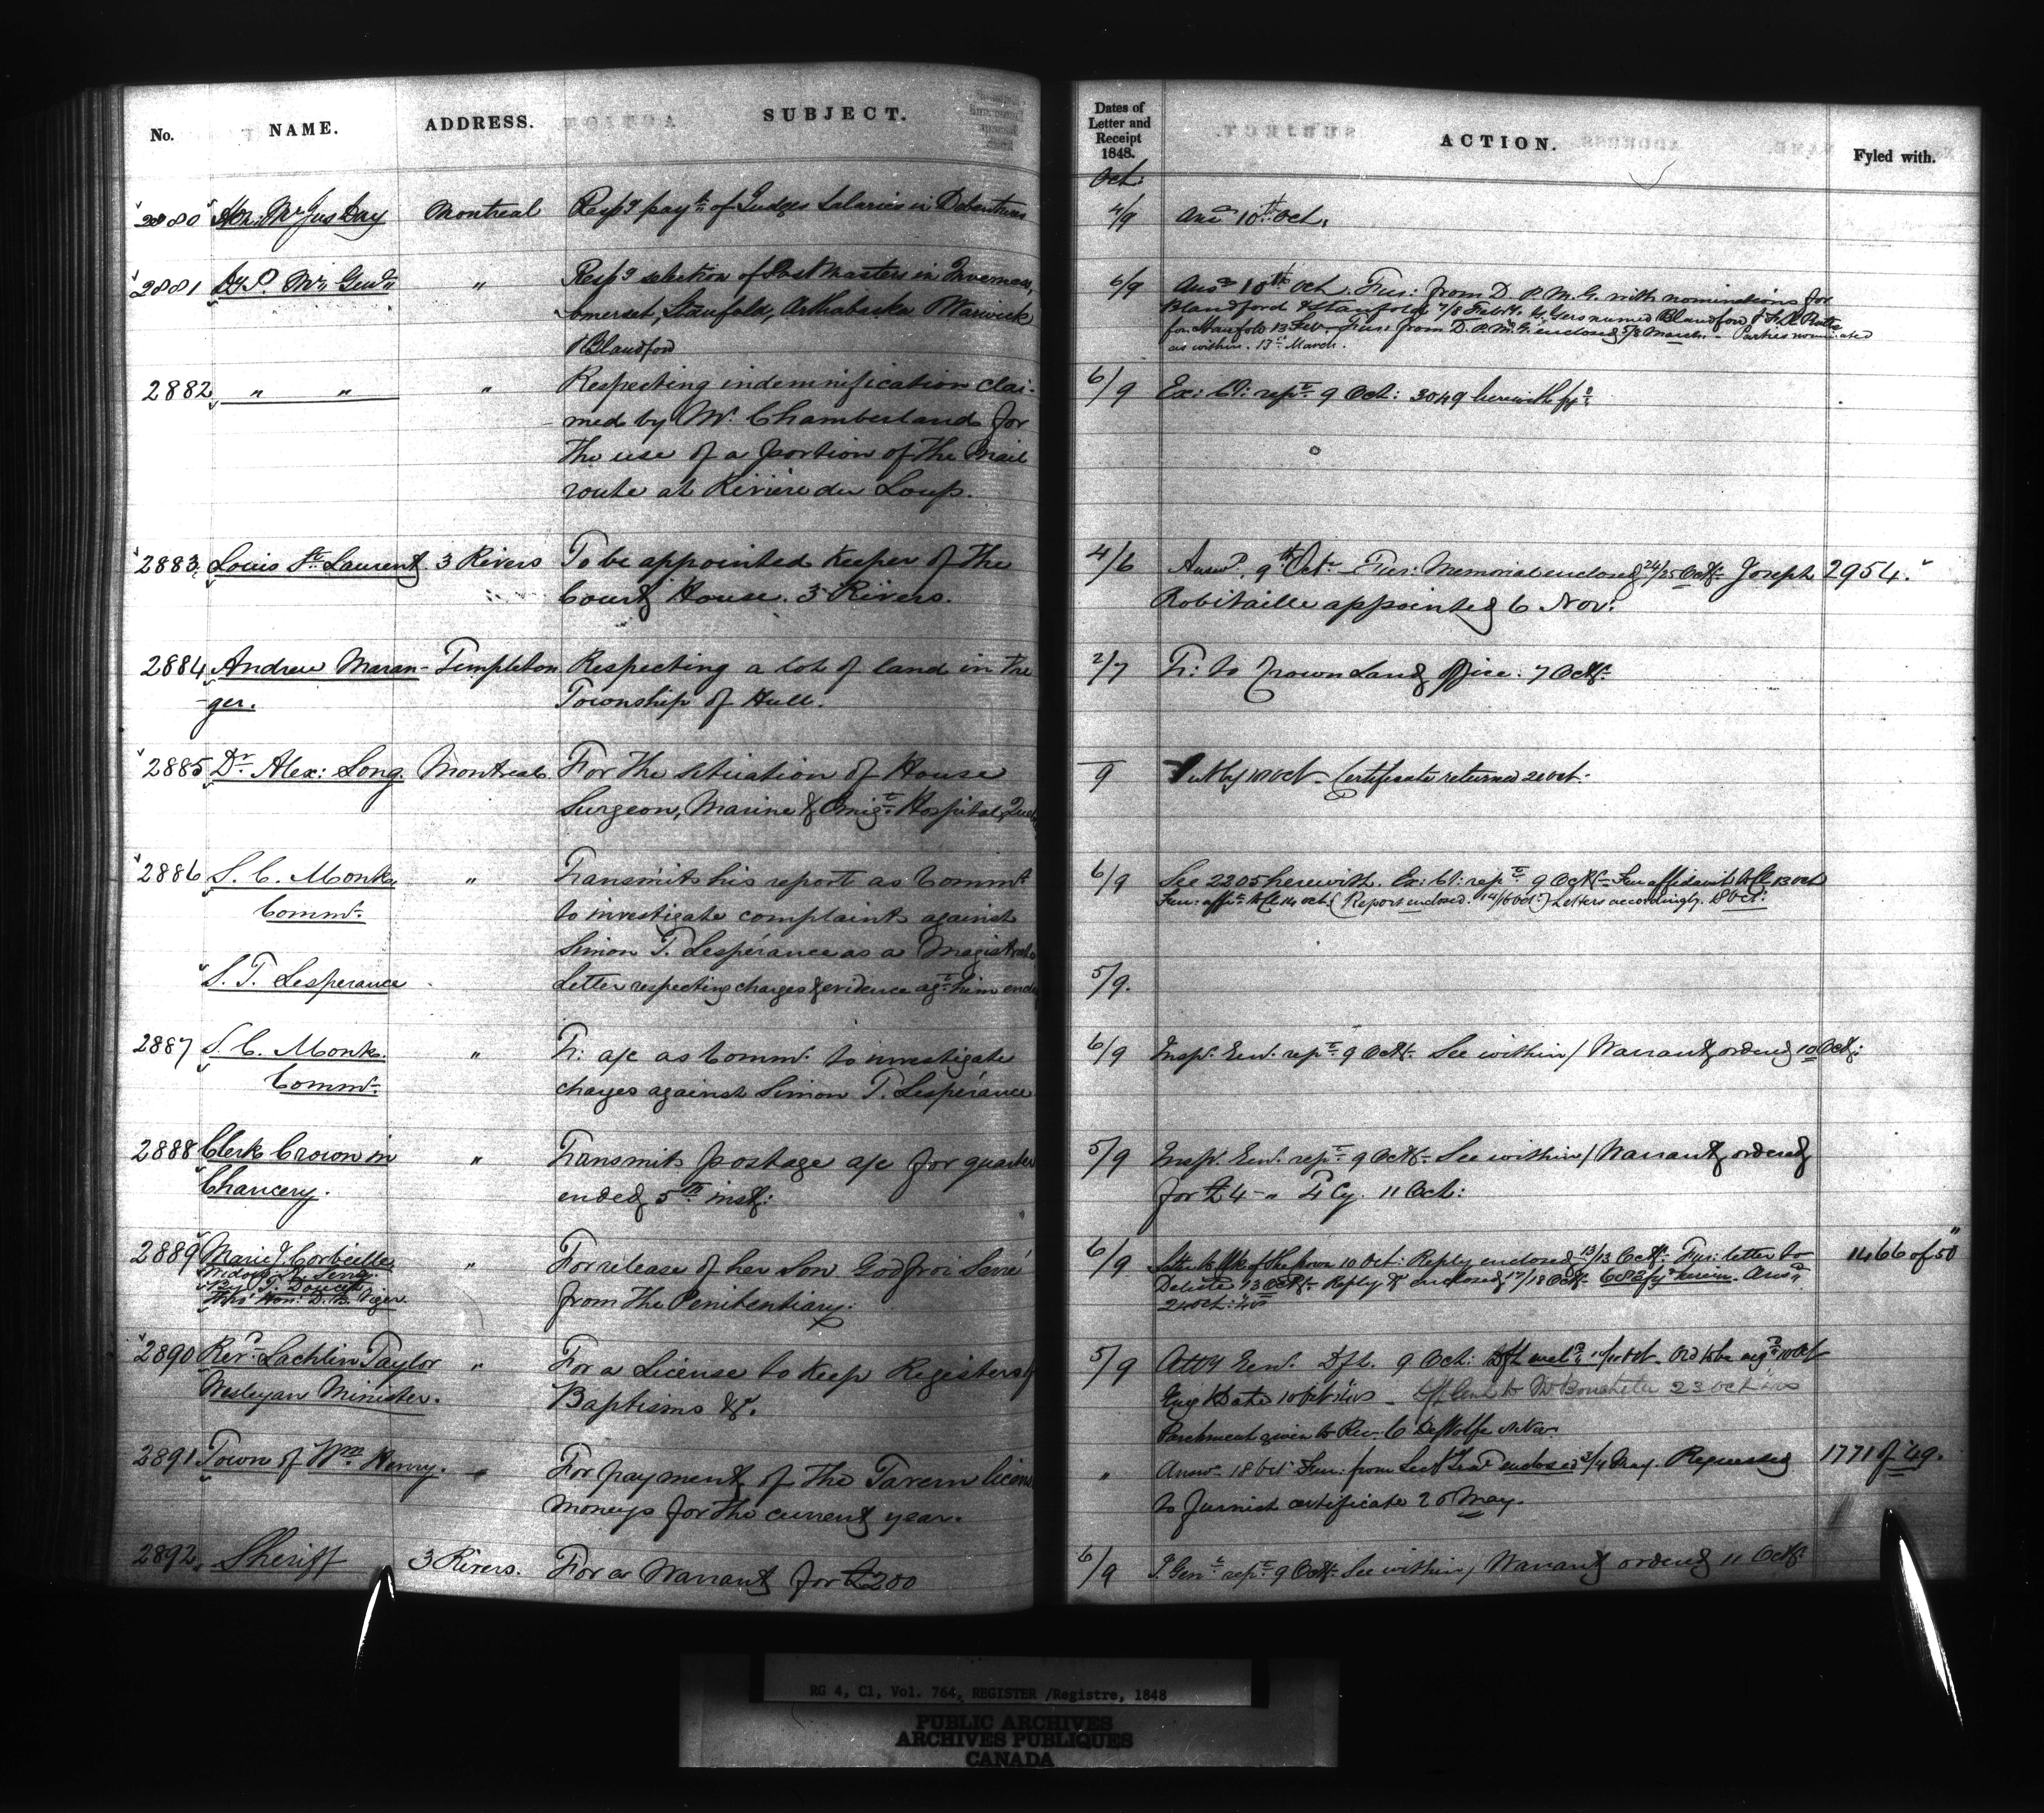 No. NAME. ADDRESS. SUBJECT.
Dates of Letter and Receipt 1848. ACTION. Fyled with.
Oct:
2880 Hon: Mr Jus Day Montreal Respg payt of Judges Salaries in Debentures 4/9 Ansd 10th Oct.
2881 Dy P. Mr Genl " Respg selection of Post Masters in Inverness, 6/9 Ansd 10th Oct. Fur: from D P. M. G. with nominations for
Somerset, Stanfold, Arthabaska Warwick Blandford & Stanfold 7/8 Feby. named Blandford &
& Blandford for Stanfold 13 Feb. Fur: from D. P. M. G. enclosed 5/8 March. Parties nominated
as within. 13th March.
2882 " " " Respecting indemnification clai- 6/9 Ex: Cl: rept 9 Oct: 3049 herewith
med by Mr. Chamberland for
the use of a portion of the Mail
route at Rivière du Loup.
2883 Louis St. Laurent 3 Rivers To be appointed Keeper of the 4/6 Answd. 9th Oct Fur: Memorial enclosed 24/25 Oct Joseph 2954.
Court House. 3 Rivers. Robitaille appointed 6 Nov:
2884 Andrew Maran- Templeton Respecting a lot of land in the 2/7 Tr: to Crown Land Office. 7 Oct
ger. Township of Hull.
2885 Dr. Alex: Long Montreal For the situation of House 9 10 Oct Certificate returned 21 Oct:
Surgeon, Marine & Emigt Hospital,
2886 S. C. Monk " Transmits his report as Commr 6/9 See 2205 herewith. Ex: Cl: rept 9 Oct Fur affidavit 13 Oct
Commr. to investigate complaints against 14 Oct (Report enclosed. 14/16 Oct) Letters accordingly. 18 Oct:
Simon T. Lesperance as a Magistrate
S. T. Lesperance Letter respecting charges & evidence agt him 5/9.
2887 S. C. Monk. " Tr: a/c as Commr. to investigate 6/9 Insp. Genl. rept 9 Oct See within / Warrant ordered 10 Oct:
Commr. charges against Simon T. Lesperance
2888 Clerk Crown in " Transmits postage a/c for quarter 5/9 Insp. Genl. rept 9 Oct See within / Warrant ordered
Chancery. ended 5th inst: for £4 - " 4 Cy. 11 Oct:
2889 Marie J Corbeille " For release of her Son Godfroi Serré 6/9 Letter to 10 Oct: Reply enclosed 13/13 Oct Fur: letter to 1466 of 50
Widow from the Penitentiary. 13 Oct Reply enclosed 17/18 Oct Ansd
Hon: D. B. Viger. 24 Oct:
2890 Revd. Lachlin Taylor " For a License to keep Registers of 5/9 Atty Genl. Dft. 9 Oct: 10 Oct
Wesleyan Minister. Baptisms &c. Date 10 Oct 23 Oct
Parchment given to Rev. C DeWolfe Nov.
2891 Town of Wm Henry. " For payment of the Tavern licens " Answ 18 Oct Fur: from enclosed 3/4 May. Requested 1771 of 49.
moneys for the current year. to furnish certificate 20 May.
2892 Sheriff 3 Rivers. For a Warrant for £200 6/9 I. Genl rept 9 Oct See within / Warrant ordered 11 Oct
RG 4, C1, Vol. 764, REGISTER /Registre, 1848
PUBLIC ARCHIVES
ARCHIVES PUBLIQUES
CANADA